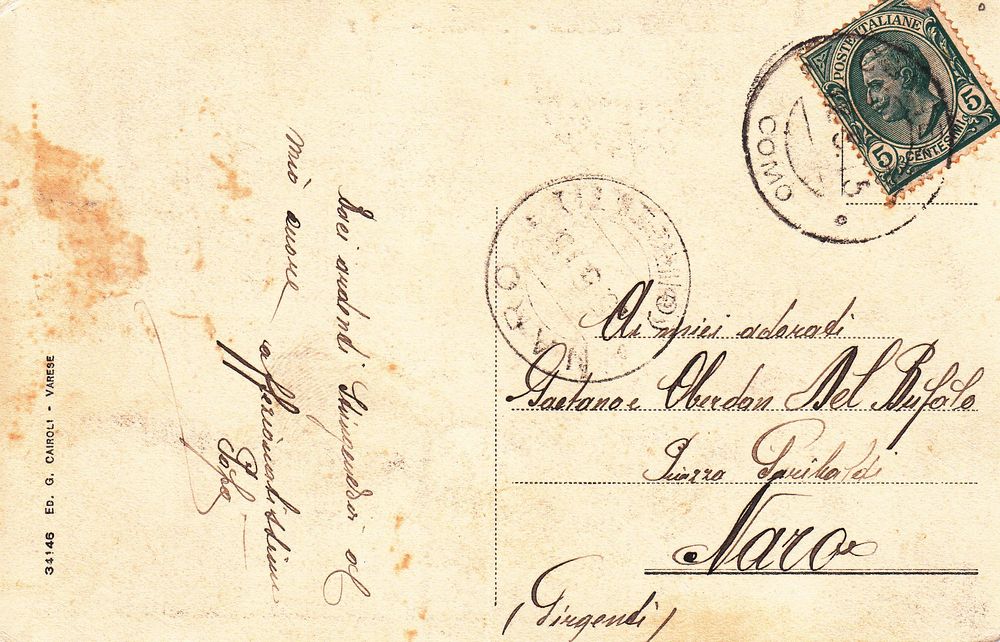 POSTE ITALIANE
5 CENTESIMI 5
COMO
NARO
Baci ardenti Stringendovi al
mio cuore affezionatissimo
Papà
Ai miei adorati
Gaetano e Oberdan Del Bufalo
Piazza Garibaldi
Naro
(Girgenti)
34146 ED. G. CAIROLI - VARESE